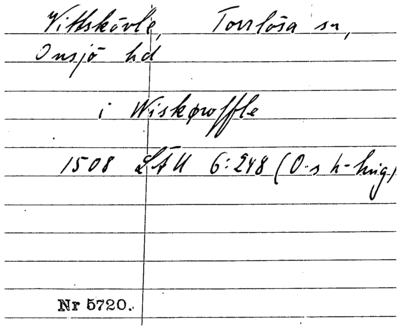 Vittskövle, Torrlösa sn,
Onsjö hd
i Wiskøroffle
1508 LÄU 6:248 (O-s h-hing.)
Nr 5720.